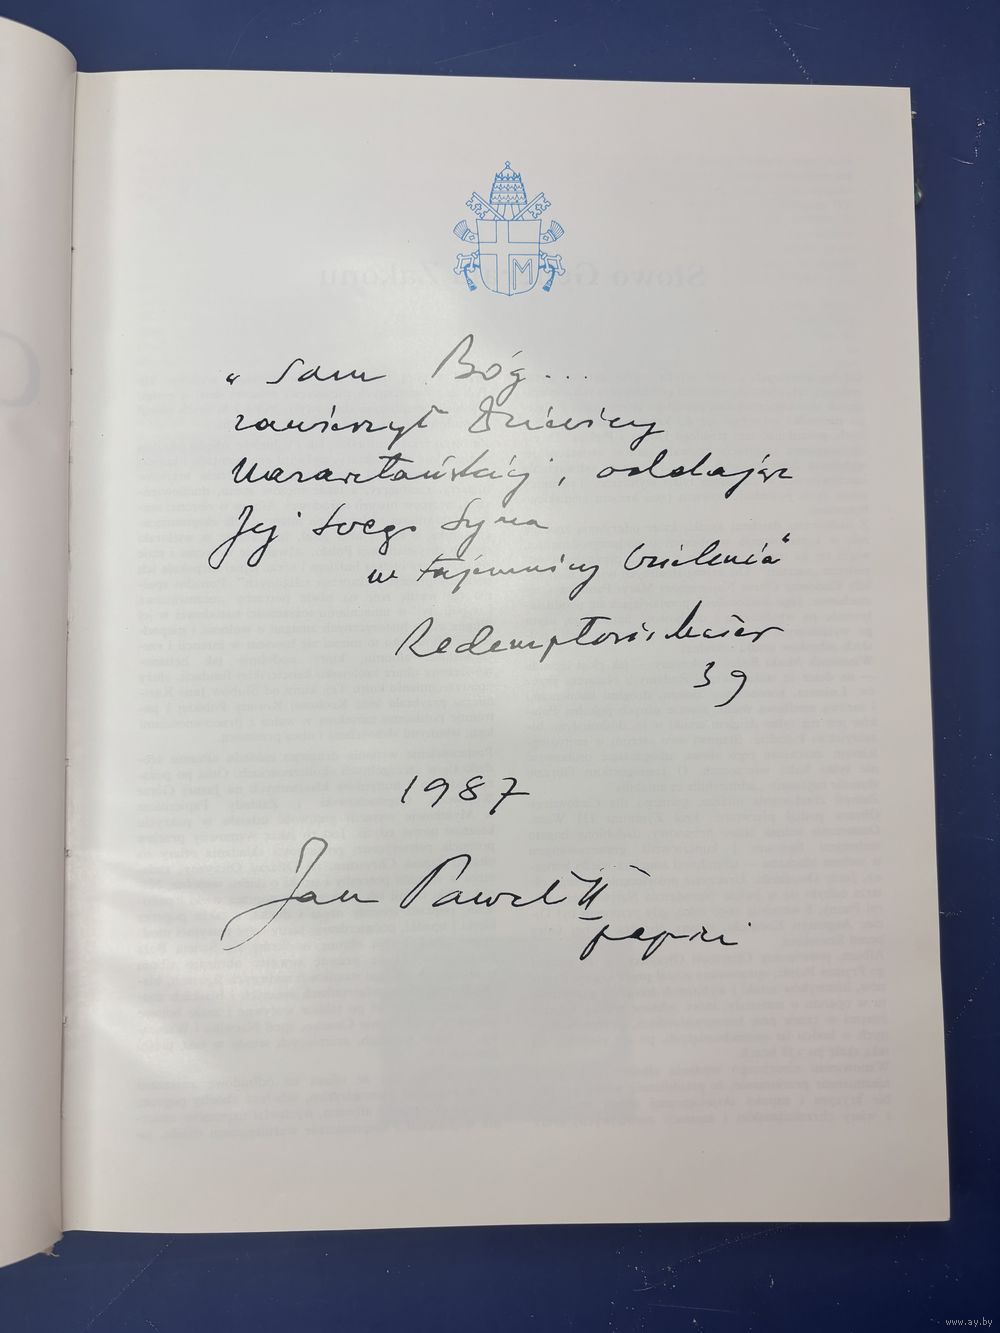 M
„Sam Bóg...
zawierzył Dziewicy
Nazaretańskiej, oddając
Jej swego Syna
w tajemnicy Wcielenia”
Redemptoris Mater
39
1987
Jan Paweł II
papież
www.ay.by